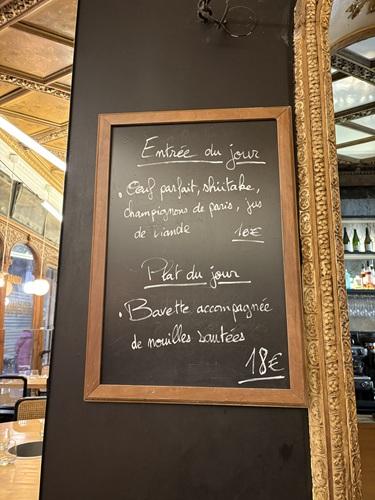 Entrée du jour
. Oeuf parfait, shiitake,
champignons de paris, jus
de viande 10€
Plat du jour
. Bavette accompagnée
de nouilles sautées
18€